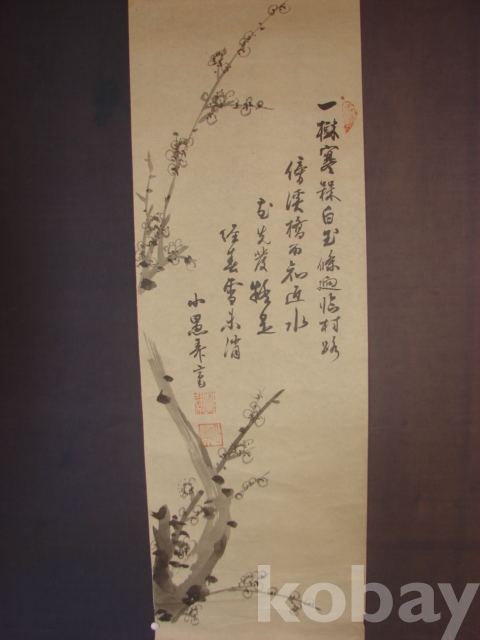 一樹寒槑白玉條迥臨村路
傍溪橋不知近水
花先發疑是
經春雪未消
小愚
kobay